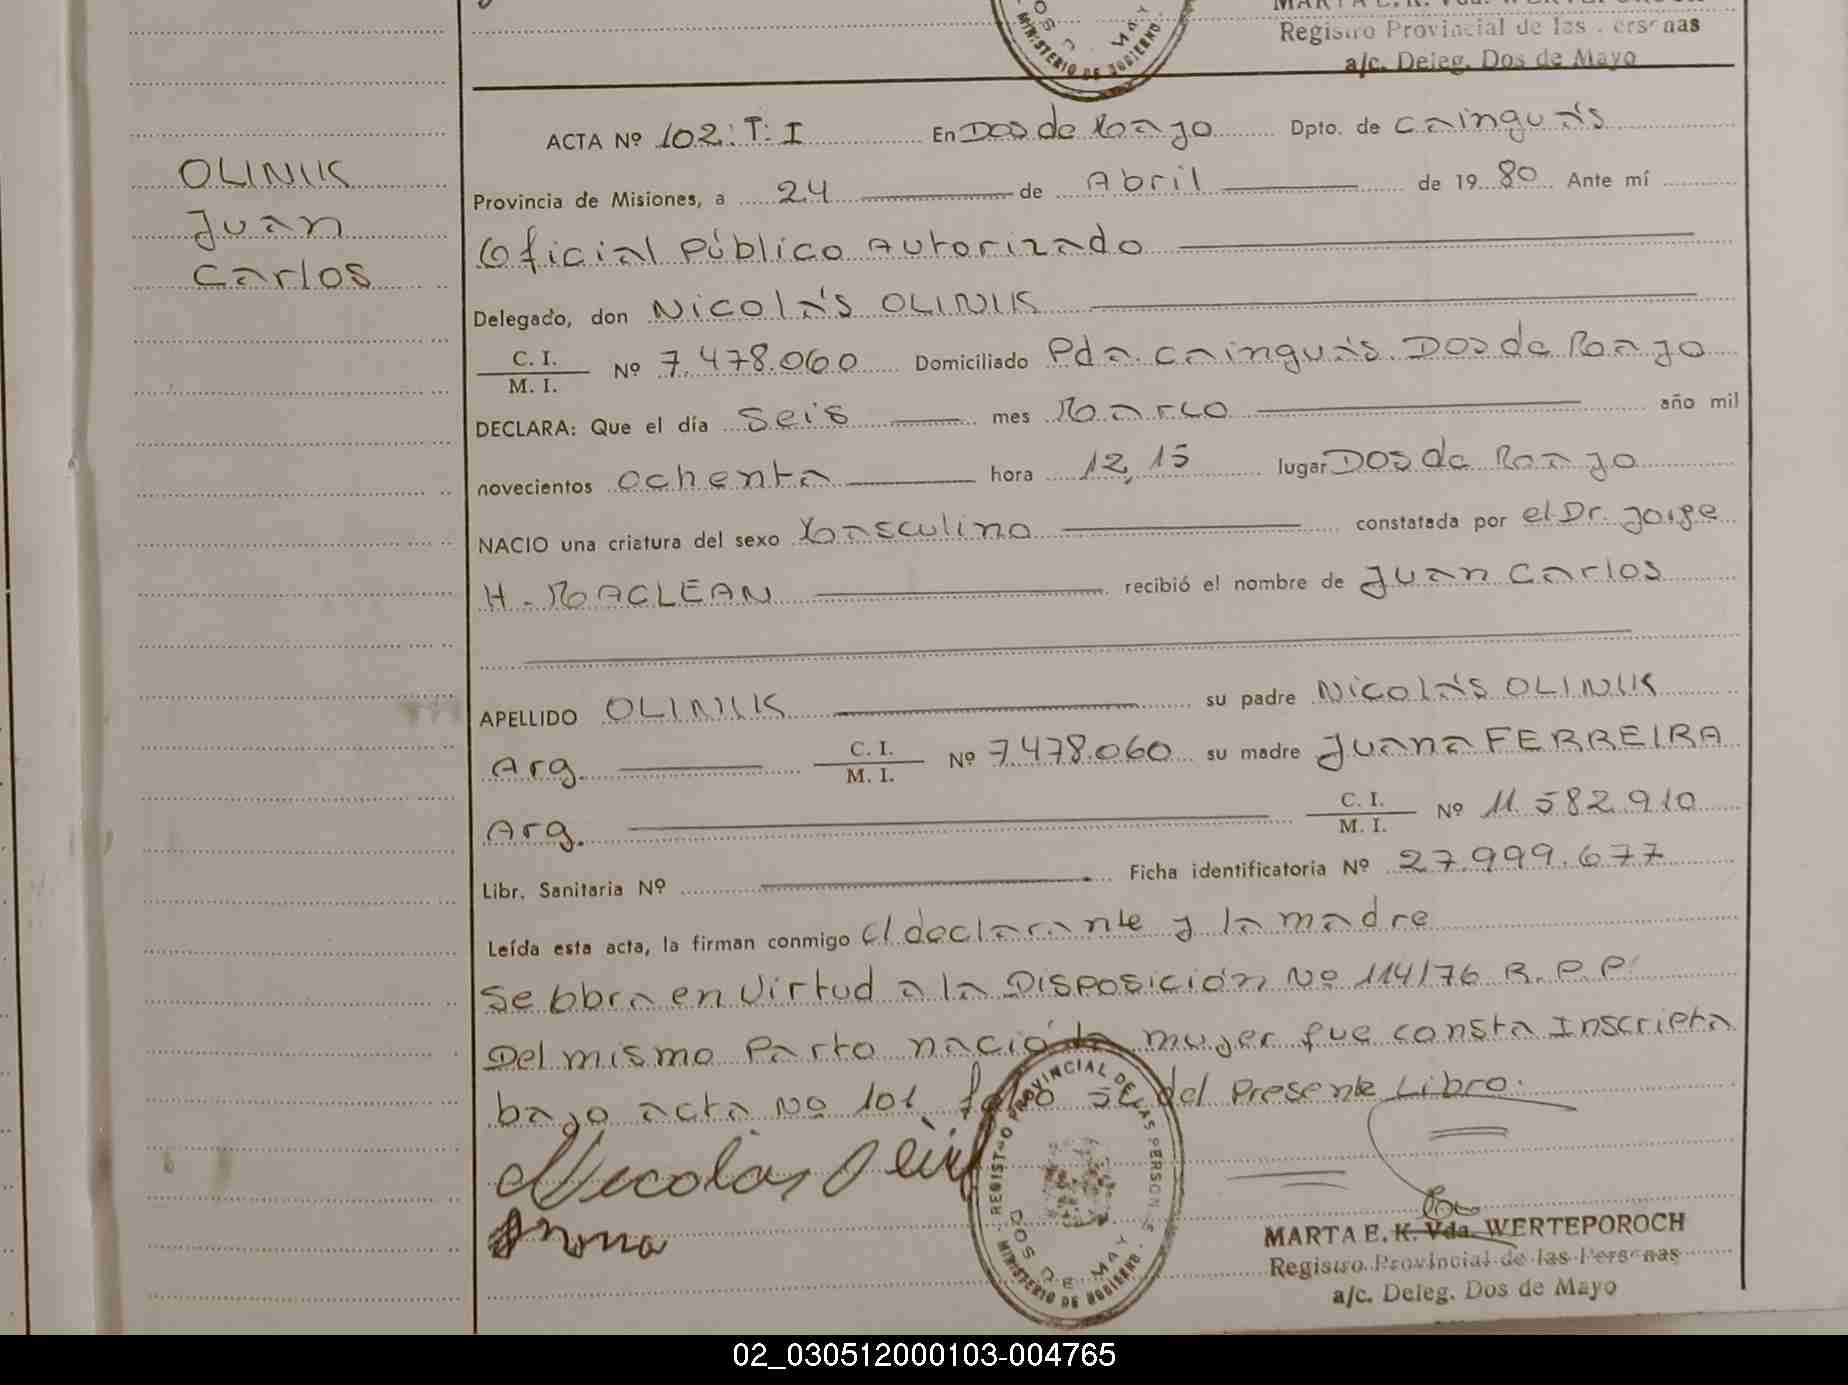 MARTA E. K. Vda. WERTEPOROCH
Registro Provincial de las Personas
a/c. Deleg. Dos de Mayo
MINISTERIO DE GOBIERNO
OLINIK
Juan
Carlos
ACTA Nº 102: T: I En Dos de Mayo Dpto. de Cainguás
Provincia de Misiones, a 24 de Abril de 1980 Ante mí
Oficial Público Autorizado
Delegado, don Nicolás OLINIK
C. I.
M. I. Nº 7.478.060 Domiciliado Pda. Cainguás. Dos de Mayo
DECLARA: Que el día Seis mes Marzo año mil
novecientos ochenta hora 12,15 lugar Dos de Mayo
NACIO una criatura del sexo Masculino constatada por el Dr. Jorge
H. MACLEAN recibió el nombre de Juan Carlos
APELLIDO OLINIK su padre Nicolás OLINIK
Arg. C. I.
M. I. Nº 7.478.060 su madre Juana FERREIRA
Arg. C. I.
M. I. Nº 11.582.910
Libr. Sanitaria Nº Ficha identificatoria Nº 27.999.677
Leída esta acta, la firman conmigo el declarante y la madre
Se obra en Virtud a la Disposición Nº 114/76 R.P.P.
Del mismo Parto nacida mujer fue consta Inscripta
bajo acta Nº 101 folio 51 del Presente Libro.
Nicolas Olinik
REGISTRO PROVINCIAL DE LAS PERSONAS
DOS DE MAYO
MINISTERIO DE GOBIERNO
MARTA E. K. Vda. WERTEPOROCH
Registro Provincial de las Personas
a/c. Deleg. Dos de Mayo
02_030512000103-004765